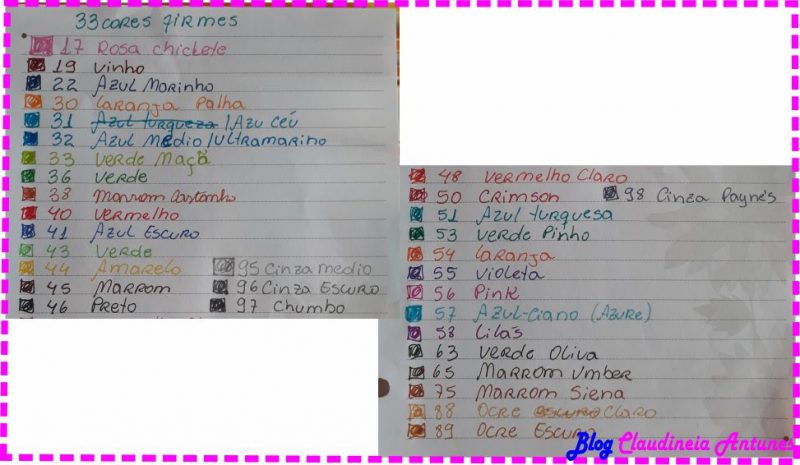 33 cores firmes
17 Rosa chiclete
19 Vinho
22 Azul Marinho
30 Laranja Palha
31 Azul turqueza / Azu céu
32 Azul Médio / Ultramarino
33 Verde Maçã
36 Verde
38 Marrom Castanho
40 Vermelho
41 Azul Escuro
43 Verde
44 Amarelo 95 Cinza medio
45 Marrom 96 Cinza Escuro
46 Preto 97 Chumbo
48 Vermelho Claro
50 Crimson 98 Cinza Payne's
51 Azul turquesa
53 Verde Pinho
54 Laranja
55 Violeta
56 Pink
57 Azul-Ciano (Azure)
58 Lilás
63 Verde Oliva
65 Marrom Umber
75 Marrom Siena
88 Ocre Escuro Claro
89 Ocre Escuro
Blog Claudineia Antunes